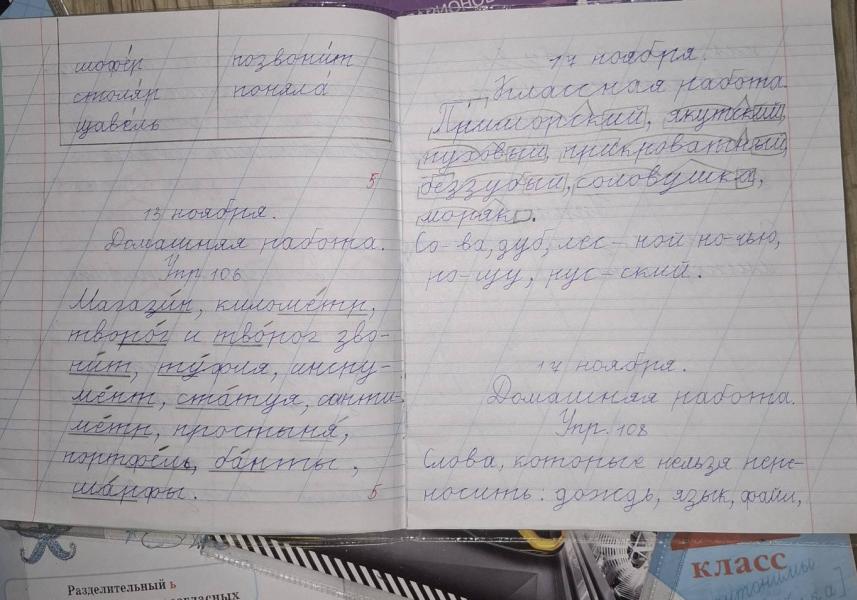 шофёр позвони́т
столя́р поняла́
щаве́ль
5
13 ноября.
Домашняя работа.
Упр. 106
Магази́н, киломе́тр,
творо́г и тво́рог зво-
ни́т, ту́фля, инстру-
ме́нт, ста́туя, санти-
ме́тр, простыня́,
портфе́ль, ба́нты,
ша́рфы.
5
17 ноября.
Классная работа.
Приморский, якутский,
пуховый, прикроватный,
беззубый, соловушка,
моряк.
Со-ва, дуб, лес-ной но-чью,
ро-щу, рус-ский.
17 ноября.
Домашняя работа.
Упр. 108
Слова, которые нельзя пере-
носить: дождь, язык, файл,
Разделительный ь
класс